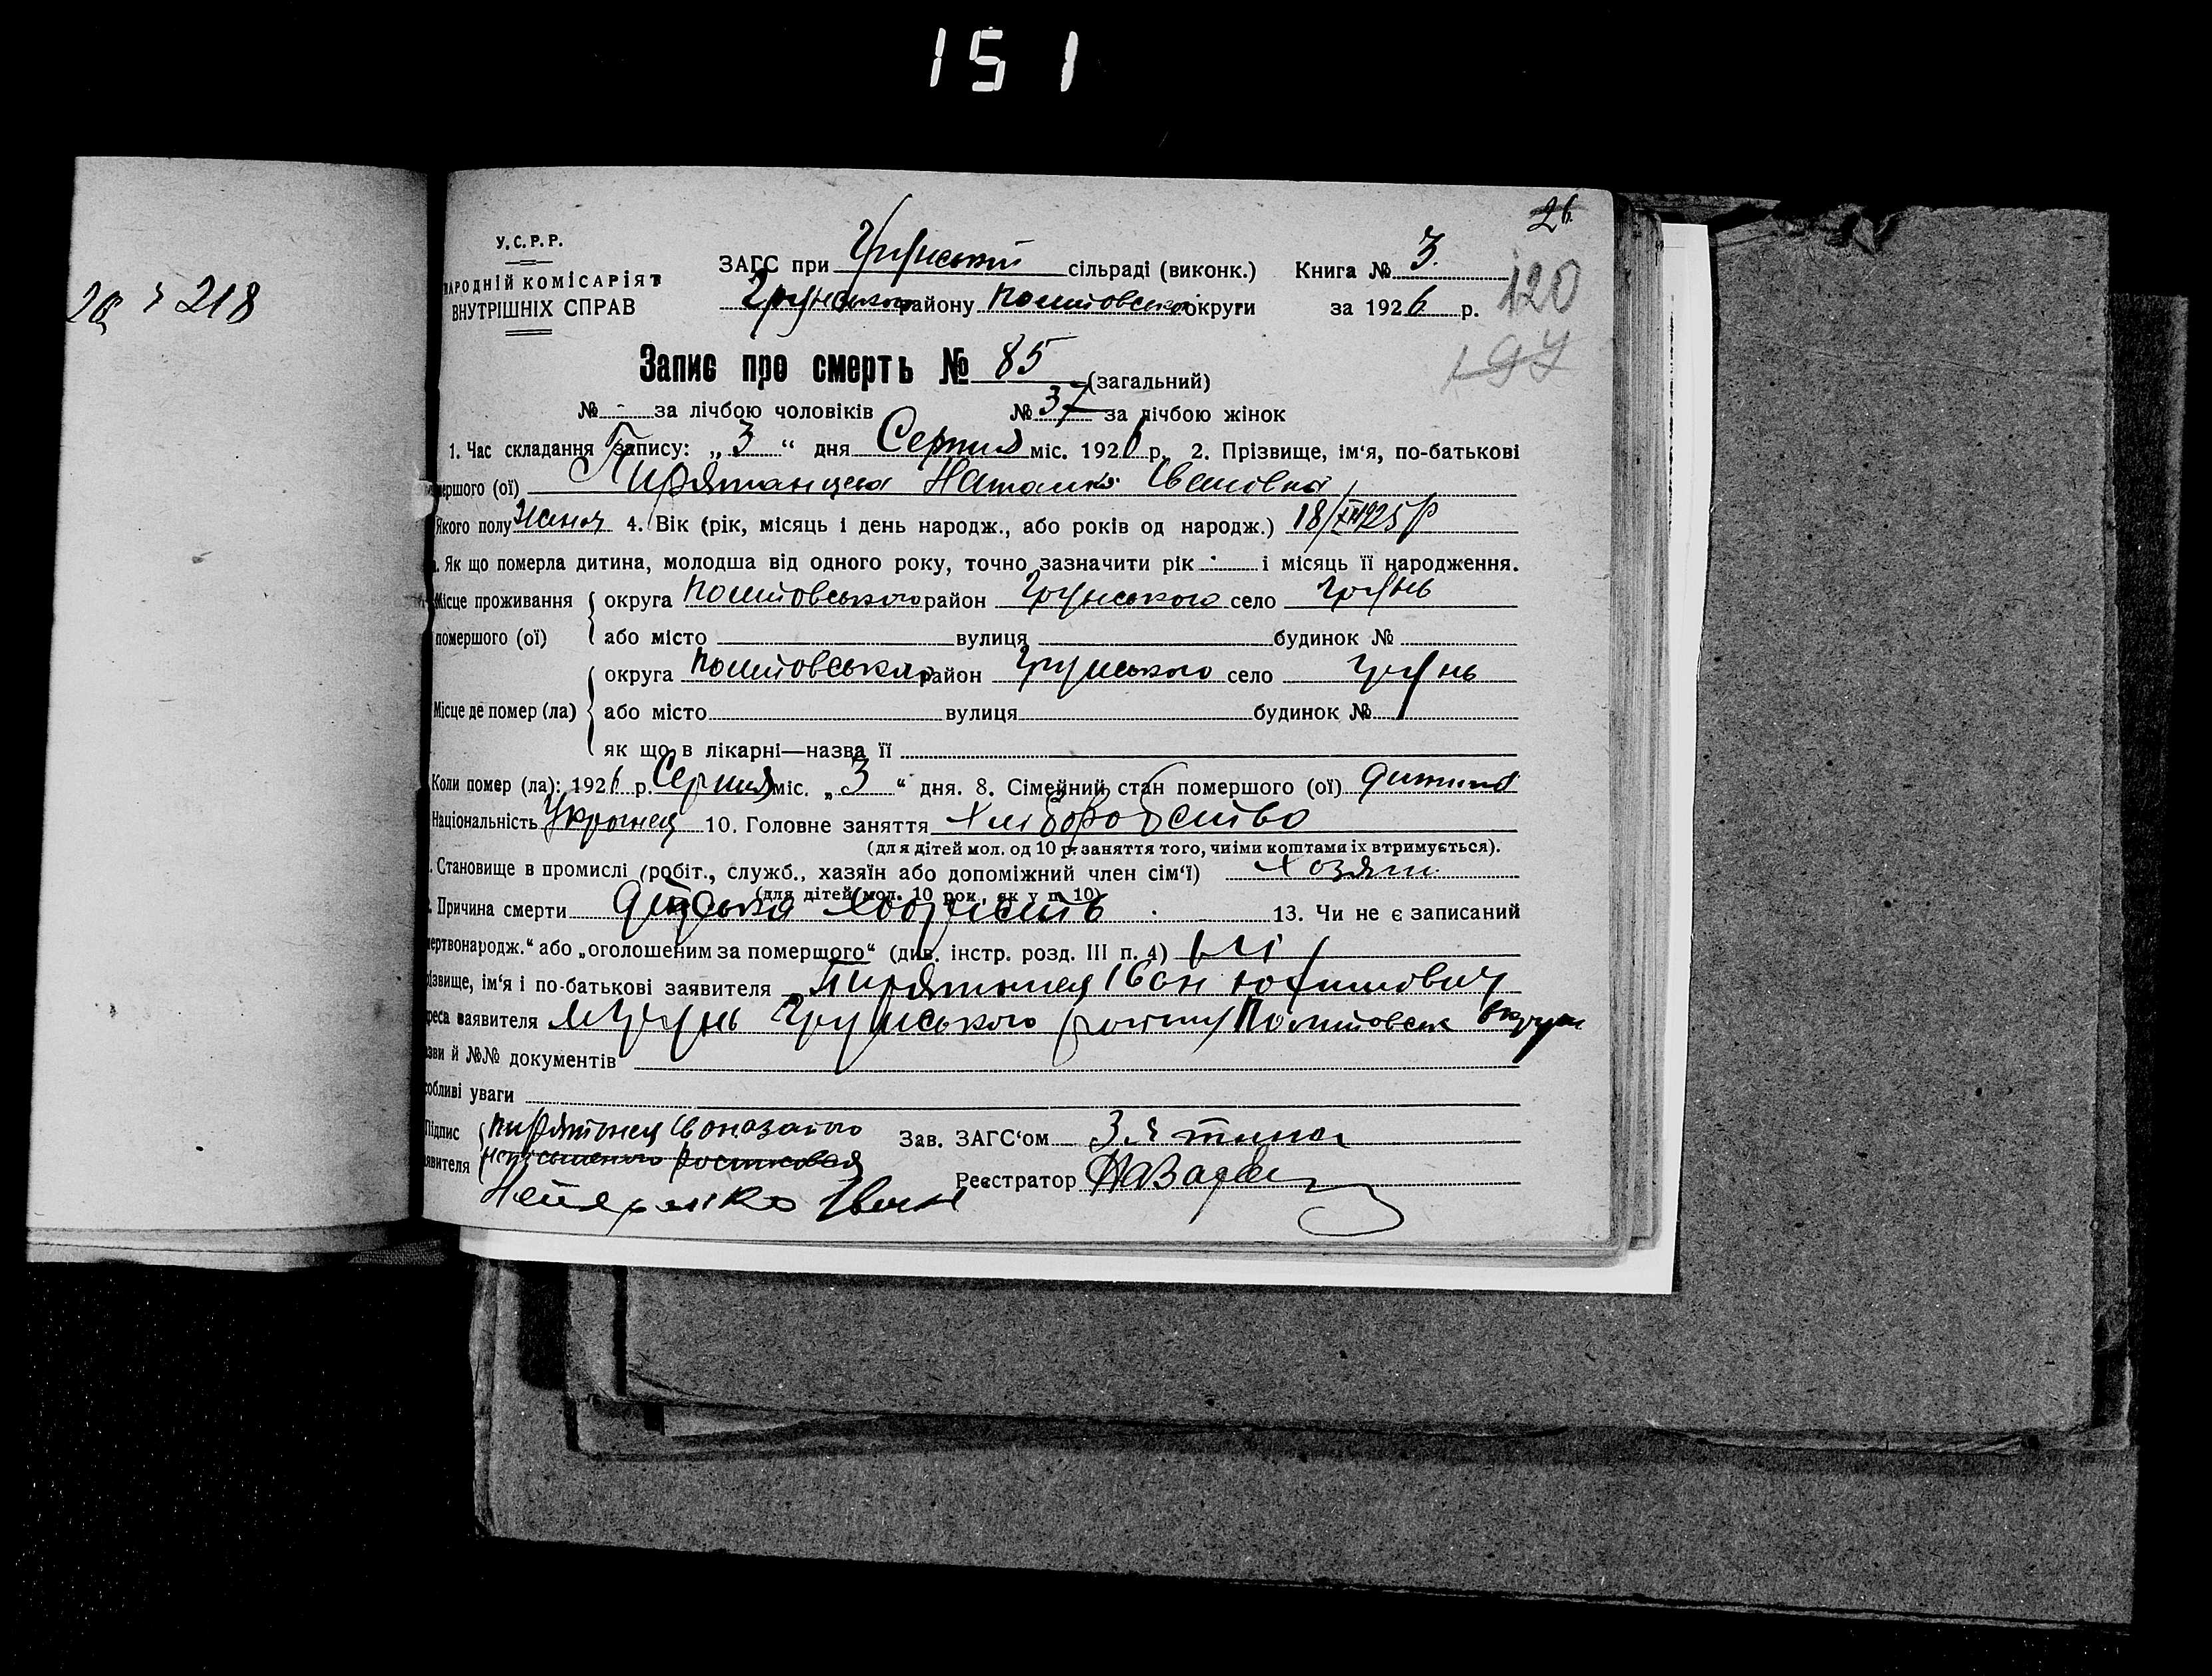 151
26
218
У.С.Р.Р.
НАРОДНІЙ КОМІСАРІЯТ
ВНУТРІШНІХ СПРАВ
ЗАГС при Грунський сільраді (виконк.) Книга № 3.
Грунського району Полтовської округи за 1926 р.
120
197
Запис про смерть № 85 (загальний)
№ - за лічбою чоловіків № 37 за лічбою жінок
1. Час складання запису: „3“ дня Серпня міс. 1926 р. 2. Прізвище, ім‘я, по-батькові
мершого (ої) Пирятанцева Наталка Івановна
Якого полу жіноч 4. Вік (рік, місяць і день народж., або років од народж.) 18/XII 1925 р
. Як що померла дитина, молодша від одного року, точно зазначити рік і місяць її народження.
Місце проживання округа Полтовського район Грунського село Грунь
померщого (ої) або місто вулиця будинок №
округа Полтовська район Грунського село Грунь
Місце де помер (ла) або місто вулиця будинок №
як що в лікарні—назва її
Коли помер (ла): 1926 р. Серпня міс. „3“ дня. 8. Сімейний стан померщого (ої) дитина
Національність Українец 10. Головне заняття Хліборобство
(для дітей мол. од 10 р. заняття того, чиїми коштами їх втримується).
. Становище в промислі (робіт., служб., хазяїн або допоміжний член сім‘ї) Хозяін
(для дітей мол. 10 рок., як у п. 10)
. Причина смерти Дитська хворость 13. Чи не є записаний
мертвонародж.“ або „оголошеним за померщого“ (див. інстр. розд. III п. 4) Ні
ізвище, ім‘я і по-батькові заявителя Пирятинец Іван Юхимович
реса заявителя м Грунь Грунського району Полтовськ округи
зви й №№ документів
собливі уваги
Підпис Пирятонец Іван
аявителя
Іван
Зав. ЗАГС‘ом
Реєстратор